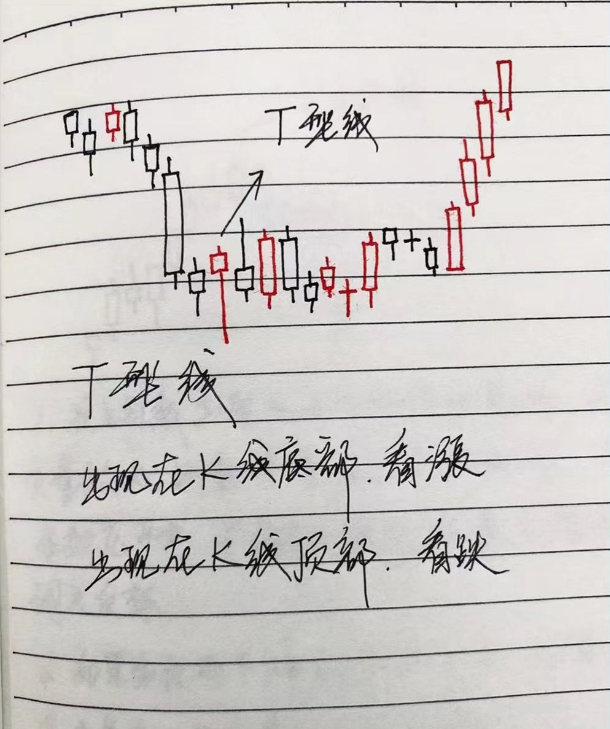 T型线
T型线
出现在K线底部.看涨
出现在K线顶部.看跌